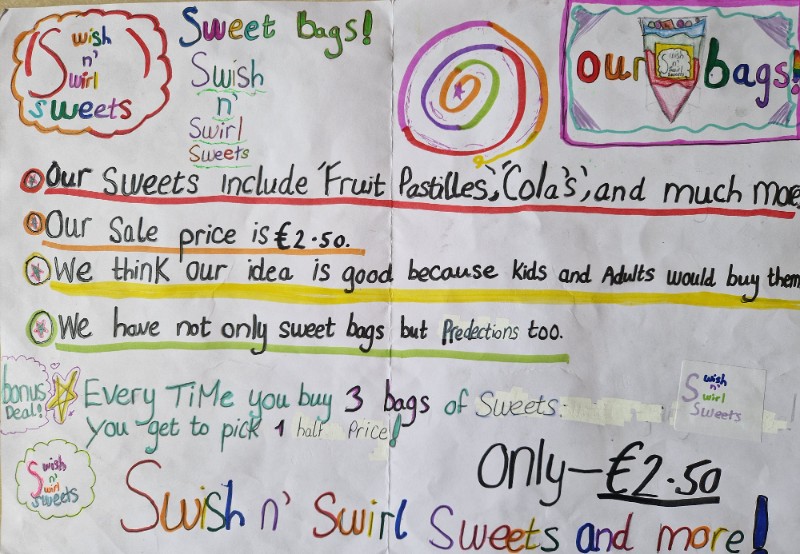 Swish
n'
Swirl
sweets
Sweet bags!
Swish
n'
Swirl
Sweets
our bags!
Swish
n'
Swirl
Sweets
Our Sweets include 'Fruit Pastilles', 'Cola's', and much more
Our Sale price is €2.50.
We think our idea is good because kids and Adults would buy them
We have not only sweet bags but Predections too.
bonus
Deal!
Every TiMe you buy 3 bags of Sweets
you get to pick 1 half Price!
Swish
n'
Swirl
Sweets
Swish
n'
Swirl
sweets
Only-€2.50
Swish n' Swirl Sweets and more!